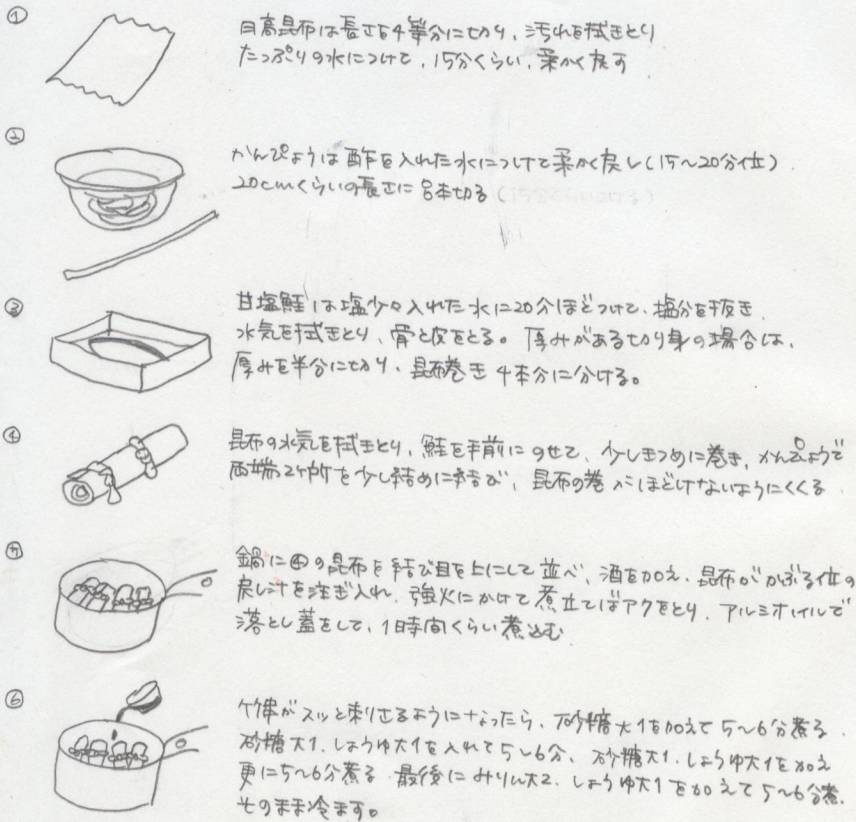 ①
日高昆布は長さを4等分に切り、汚れを拭きとり
たっぷりの水につけて、15分くらい、柔かく戻す
②
かんぴょうは酢を入れた水につけて柔かく戻し(15〜20分位)
20cmくらいの長さに8本切る(15分くらいつける)
③
甘塩鮭は塩少々入れた水に20分ほどつけて、塩分を抜き、
水気を拭きとり、骨と皮をとる。厚みがある切り身の場合は、
厚みを半分に切り、昆布巻き4本分に分ける。
④
昆布の水気を拭きとり、鮭を手前にのせて、少しきつめに巻き、かんぴょうで
両端2ケ所を少し結めに結び、昆布の巻がほどけないようにくくる
⑤
鍋に④の昆布を結び目を上にして並べ、酒を加え、昆布がかぶる位の
戻し汁を注ぎ入れ、強火にかけて煮立てばアクをとり、アルミホイルで
落とし蓋をして、1時間くらい煮込む
⑥
竹串がスッと刺さるようになったら、砂糖大1を加えて5〜6分煮る、
砂糖大1、しょうゆ大1を入れて5〜6分、砂糖大1、しょうゆ大1を加え
更に5〜6分煮る 最後にみりん大2、しょうゆ大1を加えて5〜6分煮、
そのまま冷ます。